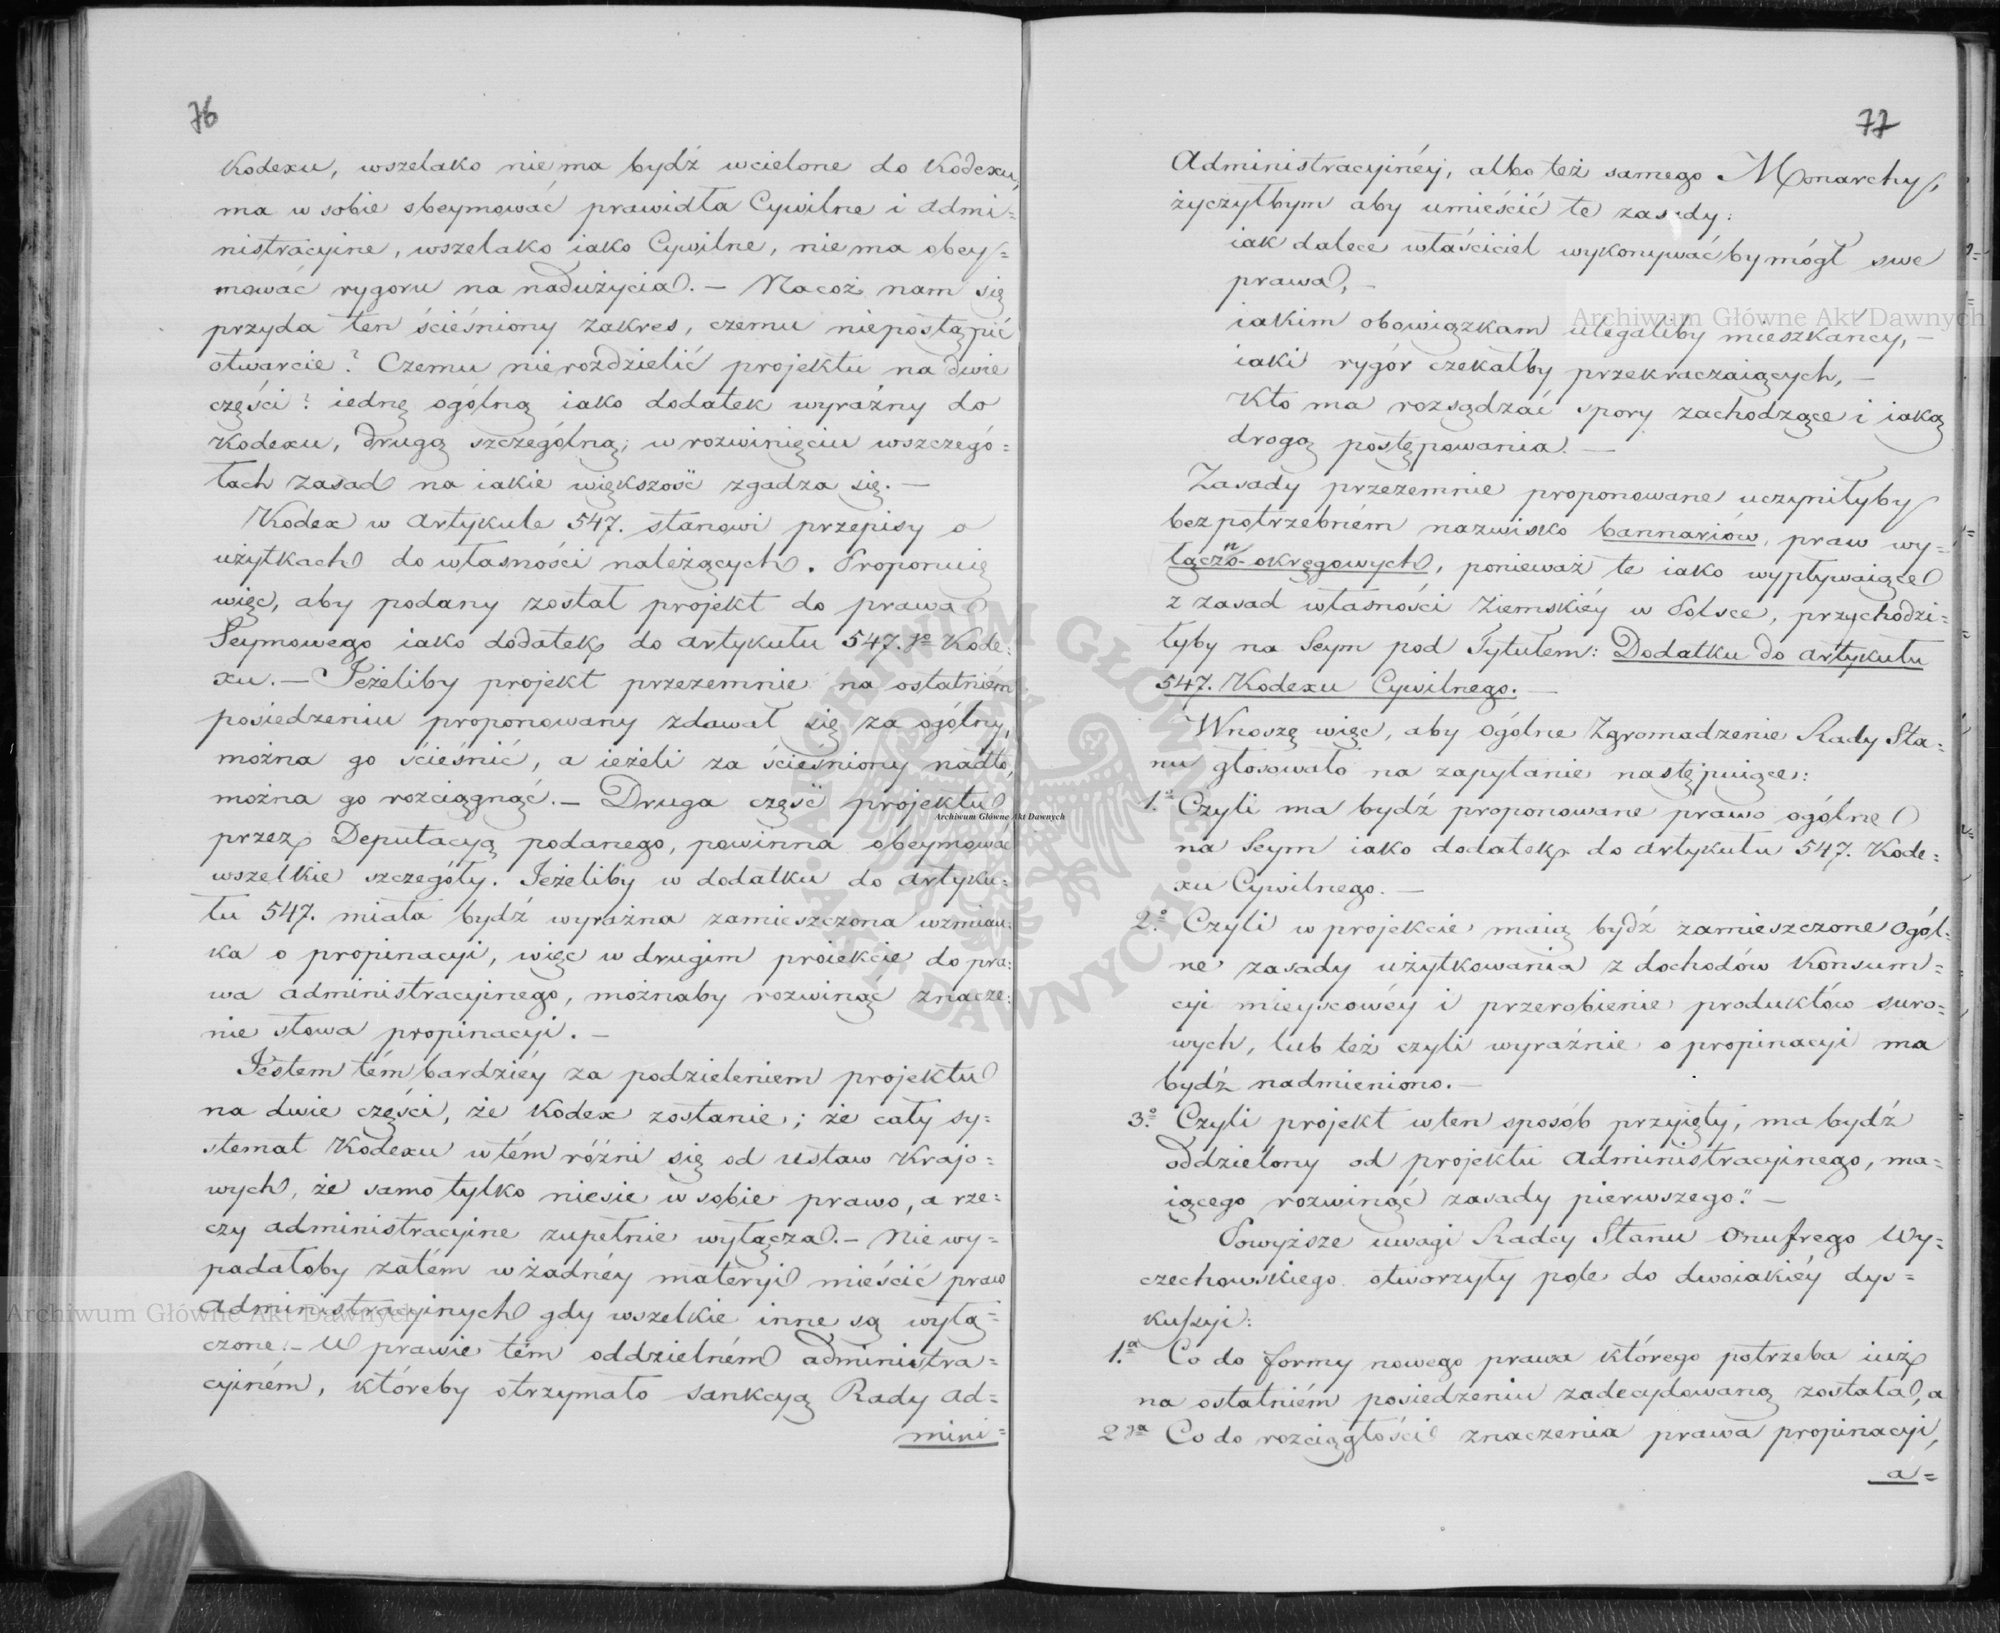 76
Kodexu, wszelako nie ma bydź wcielone do Kodexu,
ma w sobie obeymować prawidła Cywilne i admi=
nistracyjne, wszelako iako Cywilne, nie ma obey=
mować rygoru na nadużycia. — Na coż nam się
przyda ten ścieśniony zakres, czemu niepostąpić
otwarcie? Czemu nierozdzielić projektu na dwie
części? iednę ogólną iako dodatek wyraźny do
Kodexu, drugą szczególną; w rozwinięciu wszczegó=
łach zasad na iakie większość zgadza się. —
Kodex w artykule 547. stanowi przepisy o
użytkach do własności należących. Proponuię
więc, aby podany został projekt do prawa
Seymowego iako dodatek do artykułu 547.go Kode=
xu. — Jeżeliby projekt przezemnie na ostatniém
posiedzeniu proponowany zdawał się za ogólny,
można go ścieśnić, a ieżeli za ścieśniony nadto,
można go rozciągnąć. — Druga część projektu
przez Deputacyą podanego, powinna obeymować
wszelkie szczegóły. Jeżeliby w dodatku do artyku=
łu 547. miała bydź wyraźna zamieszczona wzmian=
ka o propinacyi, więc w drugim proiekcie do pra=
wa administracyinego, możnaby rozwinąć znacze=
nie słowa propinacyi. —
Jestem tém bardziéy za podzieleniem projektu
na dwie części, że Kodex zostanie; że cały sy=
stemat Kodexu w tém różni się od Ustaw Krajo=
wych, że samo tylko niesie w sobie prawo, a rze=
czy administracyine zupełnie wyłącza. — Nie wy=
padałoby zatém w żadnéy materyi mieścić praw
administracyinych gdy wszelkie inne są wyłą=
czone. — W prawie tém oddzielném administra=
cyiném, któreby otrzymało sankcyą Rady ad=
mini=
77
Administracyinéy, albo też samego Monarchy,
życzyłbym aby umieścić te zasady:
iak dalece właściciel wykonywaćby mógł swe
prawa, —
iakim obowiązkam ulegaliby mieszkańcy, —
iaki rygór czekałby przekraczaiących, —
Kto ma rozsądzać spory zachodzące i iaką
drogą postępowania. —
Zasady przezemnie proponowane uczyniłyby
bezpotrzebném nazwisko bannariów, praw wy=
łączno-okręgowych, ponieważ te iako wypływaiące
z zasad własności Ziemskiéy w Polsce, przychodzi=
łyby na Seym pod Tytułem: Dodatku do artykułu
547. Kodexu Cywilnego. —
Wnoszę więc, aby Ogólne Zgromadzenie Rady Sta=
nu głosowało na zapytanie następuiące:
1.o Czyli ma bydź proponowane prawo ogólne
na Seym iako dodatek do artykułu 547. Kode=
xu Cywilnego. —
2.o Czyli w projekcie maią bydź zamieszczone ogól=
ne zasady użytkowania z dochodów Konsum=
cyi mieyscowéy i przerobienie produktów suro=
wych, lub też czyli wyraźnie o propinacyi ma
bydź nadmieniono. —
3.o Czyli projekt w ten sposób przyięty, ma bydź
oddzielony od projektu administracyinego, ma=
iącego rozwinąć zasady pierwszego." —
Powyższe uwagi Radcy Stanu Onufrego Wy=
czechowskiego otworzyły pole do dwoiakiéy dys=
kussyi:
1.a Co do formy nowego prawa którego potrzeba iuż
na ostatniém posiedzeniu zadecydowaną została, a
2ga Co do rozciągłości znaczenia prawa propinacyi,
a=
Archiwum Główne Akt Dawnych
Archiwum Główne Akt Dawnych
Archiwum Główne Akt Dawnych
ARCHIWUM GŁÓWNE AKT DAWNYCH